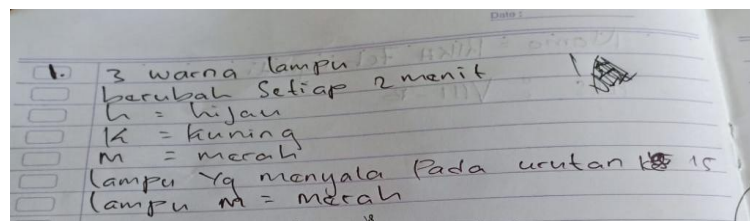 Date :
1. 3 warna lampu
berubah setiap 2 menit
h = hijau
K = kuning
m = merah
lampu yg menyala pada urutan ke 15
lampu m = merah